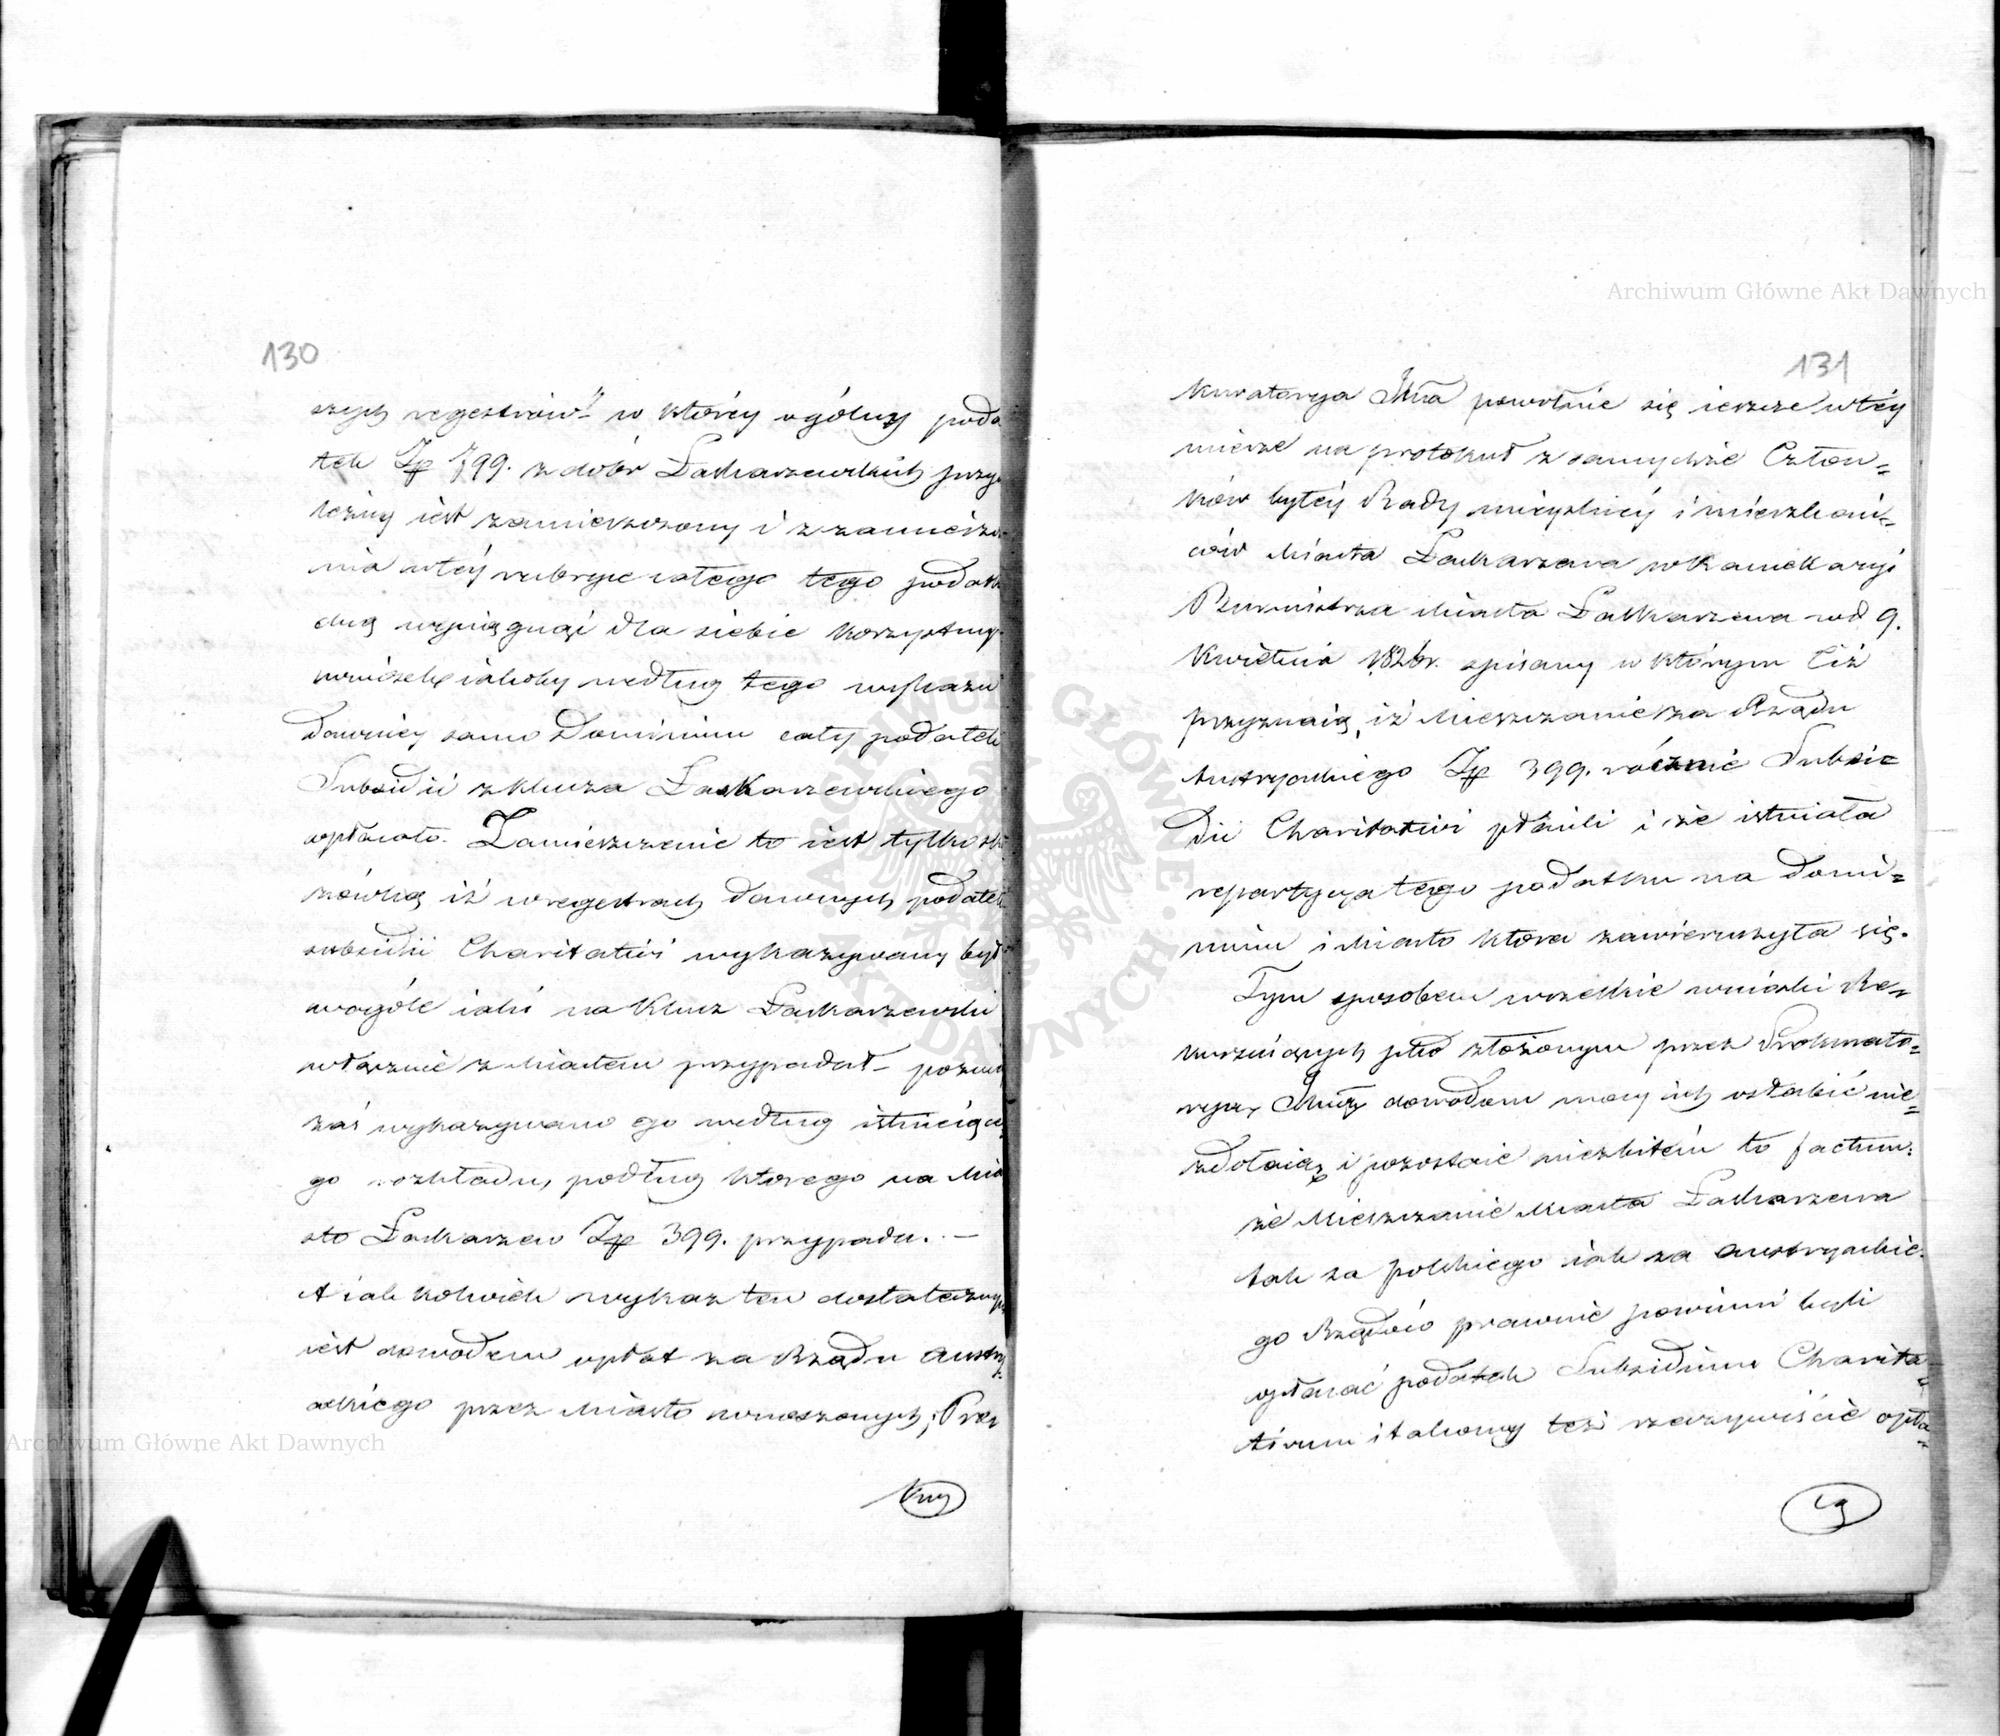 130
szych regestrów" w którey ogólny poda
tek Zp 799. z dobr Łaskarzewskich przy
leżny iest zamieszczony i z zamieszcze
nia w tey rubryce całego tego podatk
chcą wyciągnąć dla siebie korzystny
wniosek iakoby według tego wykazu
dawniey samo Dominium cały podatek
Subsidii z klucza Łaskarzewskiego
opłacało. Zamieszczenie to iest tylko ska
zówką iż w regestrach dawnych podatek
subsidii Charitativi wykazywany był
wogóle iaki na Klucz Łaskarzewski
włącznie z Miastem przypadał – pozniey
zaś wykazywano go według istnieiące
go rozkładu, podług którego na Mia
sto Łaskarzew Zp 399. przypada. –
A iak kolwiek wykaz ten dostatecznym
iest dowodem opłat za Rządu Austry
ackiego przez Miasto wnoszonych; Pro
kury
131
kuratorya powołuie się ieszcze w tey
mierze na protokuł z samychże Człon=
ków byłey Rady mieyskiey i mieszkań=
ców Miasta Łaskarzewa w Kancellaryi
Burmistrza Miasta Łaskarzewa pod 9.
Kwietnia spisany w którym Ciż
przyznaią, iż Mieszczanie za Rządu
Austryackiego Zp 399. rócznie Subsi=
dii Charitativi płacili i że istniała
repartycya tego podatku na Domi=
nium i Miasto która zawieruszyła się.
Tym sposobem wszelkie wnioski Re=
kurzuiących pko złożonym przez Prokurato=
ryą dowodom mocy ich osłabić nie=
zdołaią i pozostaie niezbitém to factum:
że Mieszczanie Miasta Łaskarzewa
tak za polskiego iak za austryackie=
go Rządów prawnie powinni byli
opłacać podatek Subsidium Charita=
tivum i takowy też rzeczywiście opła=
ca
Archiwum Główne Akt Dawnych
Archiwum Główne Akt Dawnych
ARCHIWUM GŁÓWNE AKT DAWNYCH